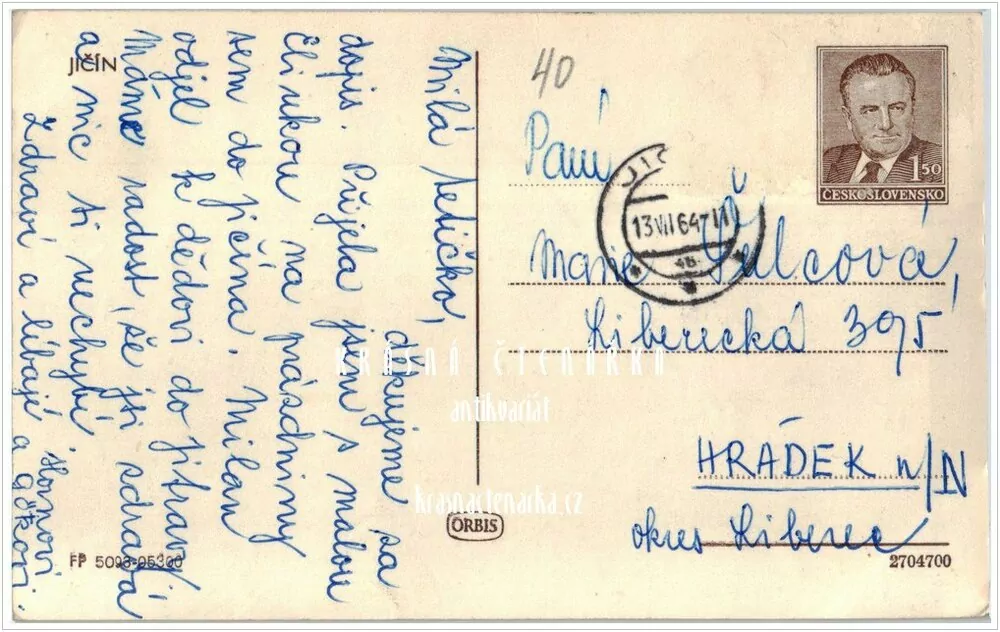 JIČÍN
Milá tetičko,
děkujeme za
dopis. Přijela jsem s malou
Elinkou na prázdniny
sem do Jičína. Milan
odjel k dědovi do Jitravy.
Máme radost, že jsi zdravá
a nic ti nechybí.
Zdraví a líbají
a
FP 5093-05300
ORBIS
40
1,50
ČESKOSLOVENSKO
JIČ
13.VII.64-11
4B
Paní
Marie Šulcová,
Liberecká 395
HRÁDEK n/N
okres Liberec
2704700
KRÁSNÁ ČTENÁŘKA
antikvariát
krasnactenarka.cz